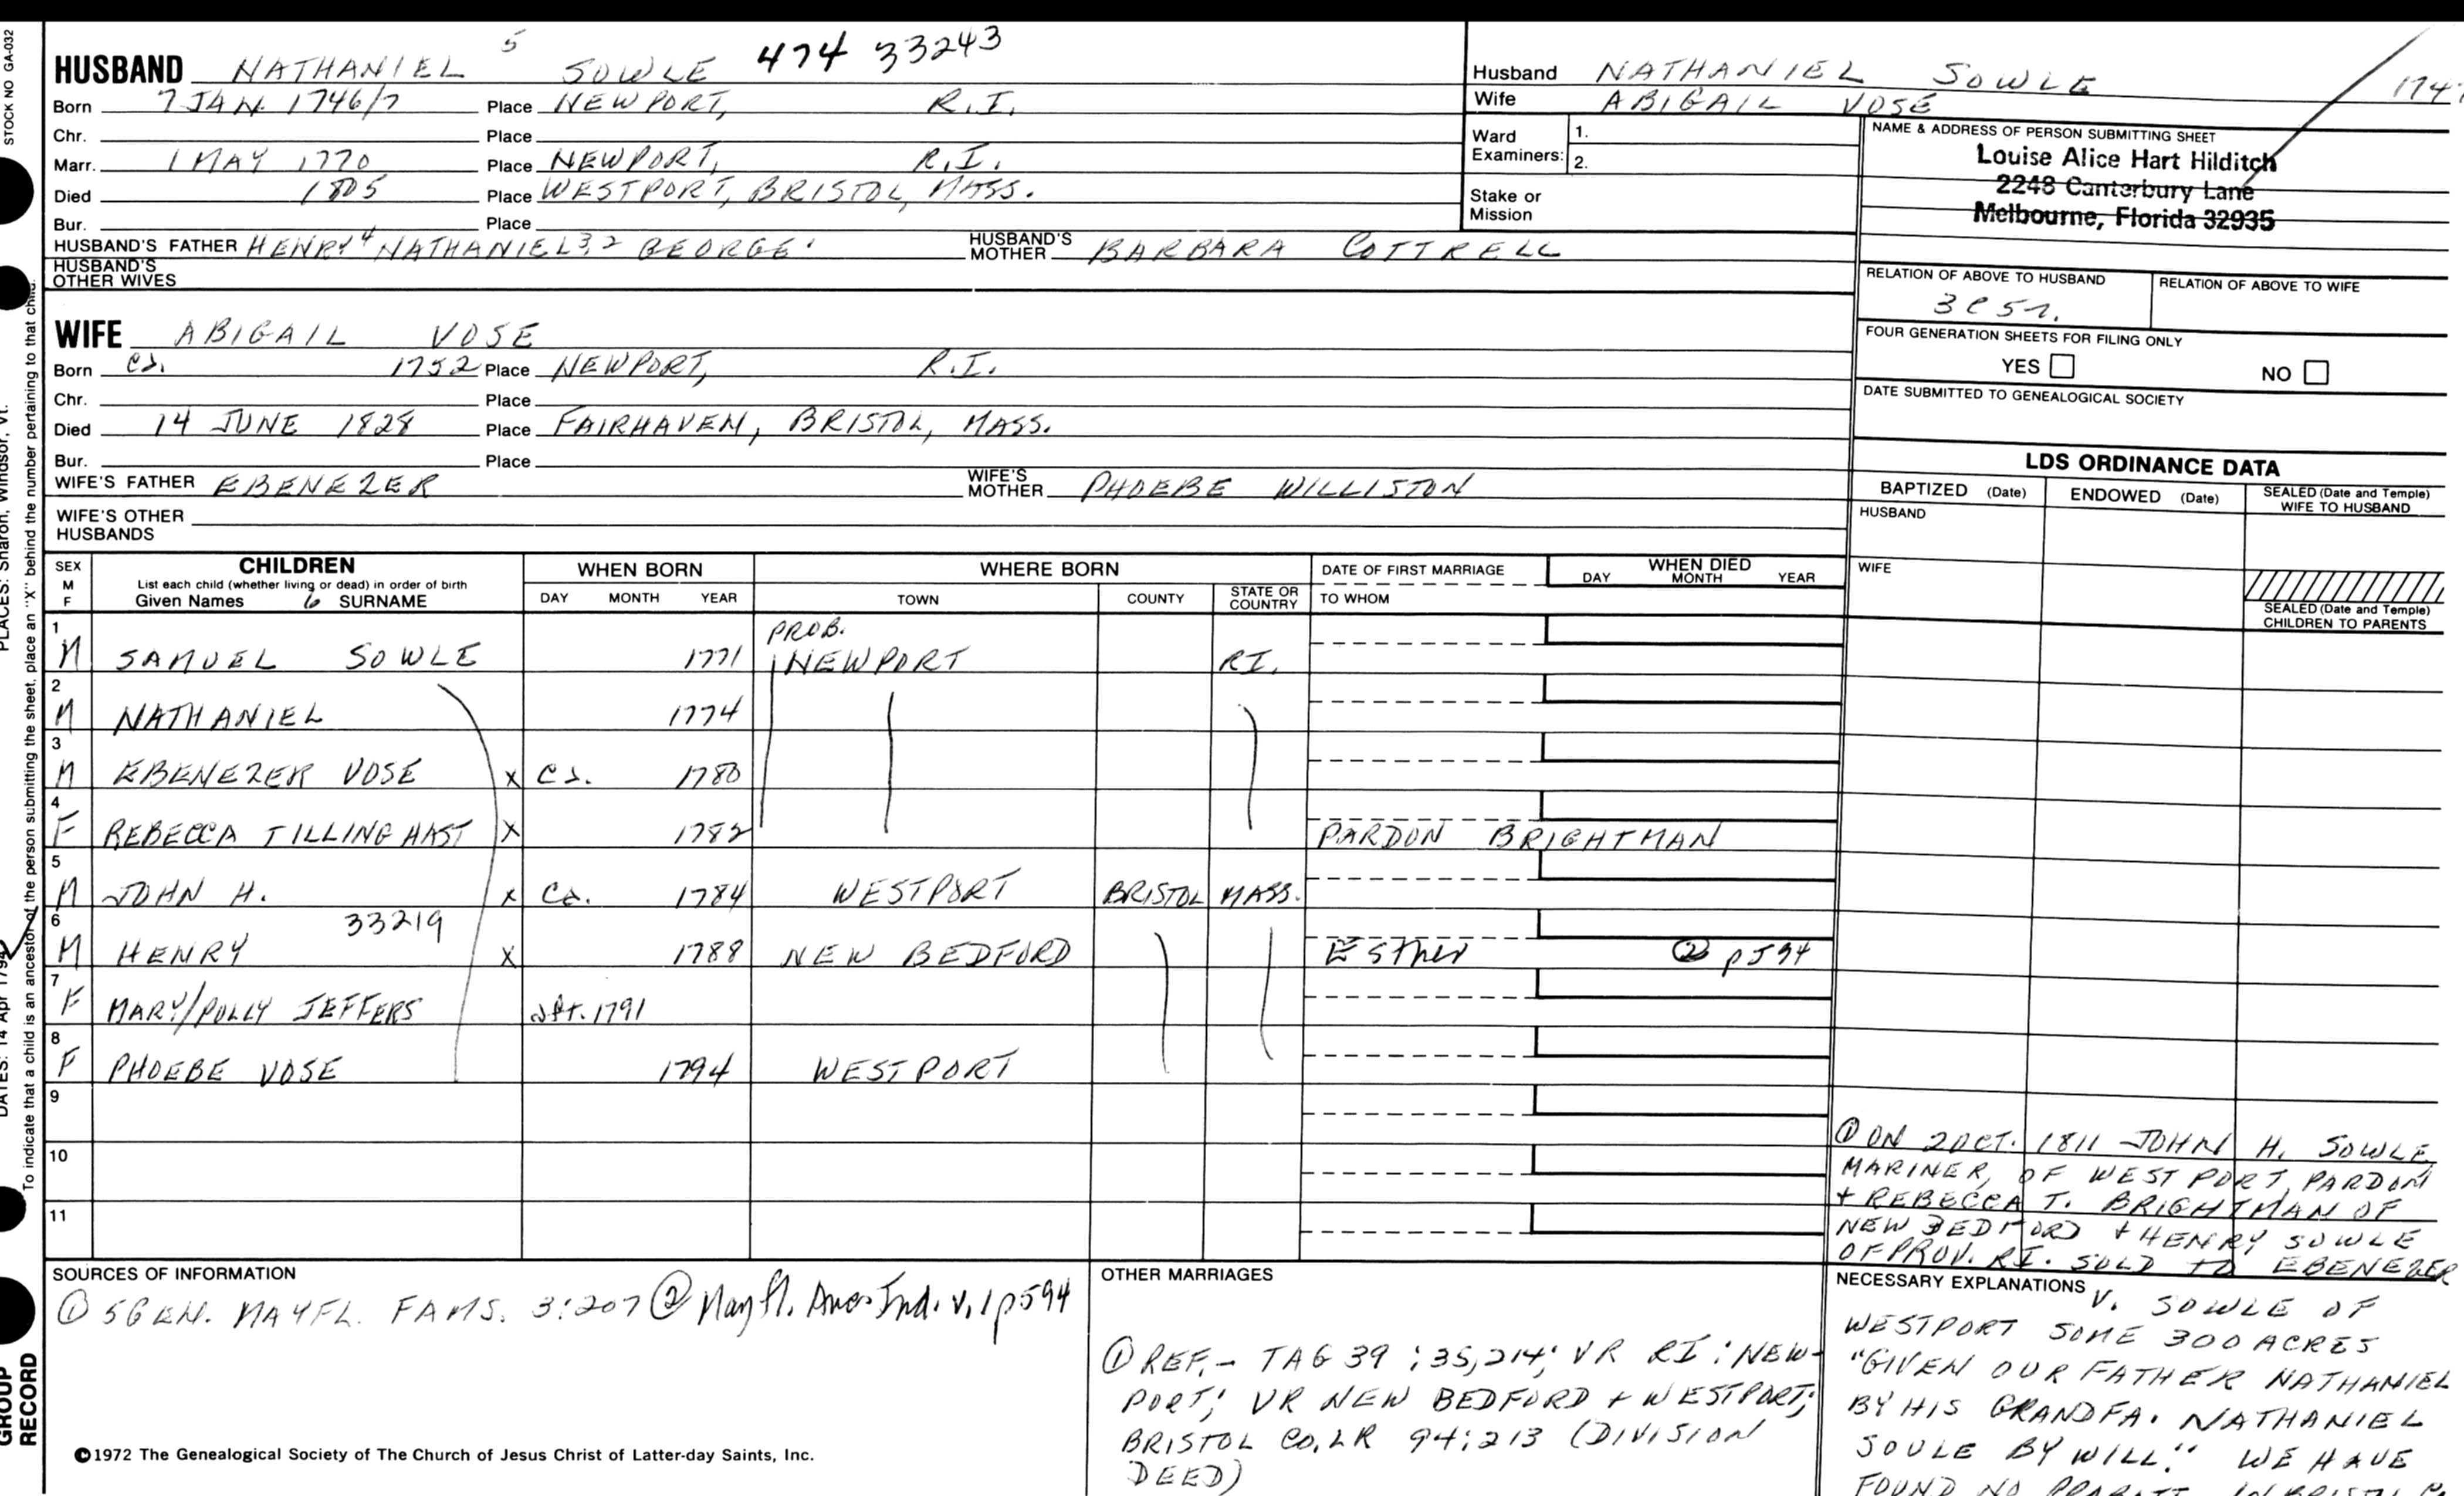 STOCK NO GA-032
HUSBAND NATHANIEL 5 SOWLE 474 33243
Born 7 JAN. 1746/7 Place NEWPORT, R.I.
Chr. Place
Marr. 1 MAY 1770 Place NEWPORT, R.I.
Died 1805 Place WESTPORT, BRISTOL, MASS.
Bur. Place
HUSBAND'S FATHER HENRY 4 NATHANIEL 3,2 GEORGE 1 HUSBAND'S MOTHER BARBARA COTTRELL
HUSBAND'S OTHER WIVES
WIFE ABIGAIL VOSE
Born ca. 1752 Place NEWPORT, R.I.
Chr. Place
Died 14 JUNE 1828 Place FAIRHAVEN, BRISTOL, MASS.
Bur. Place
WIFE'S FATHER EBENEZER WIFE'S MOTHER PHOEBE WILLISTON
WIFE'S OTHER HUSBANDS
Husband NATHANIEL SOWLE
Wife ABIGAIL VOSE
Ward Examiners: 1.
2.
Stake or Mission
NAME & ADDRESS OF PERSON SUBMITTING SHEET
Louise Alice Hart Hilditch
2248 Canterbury Lane
Melbourne, Florida 32935
RELATION OF ABOVE TO HUSBAND RELATION OF ABOVE TO WIFE
FOUR GENERATION SHEETS FOR FILING ONLY
YES NO
DATE SUBMITTED TO GENEALOGICAL SOCIETY
LDS ORDINANCE DATA
BAPTIZED (Date) ENDOWED (Date) SEALED (Date and Temple) WIFE TO HUSBAND
HUSBAND
WIFE
SEALED (Date and Temple) CHILDREN TO PARENTS
SEX M F CHILDREN WHEN BORN WHERE BORN DATE OF FIRST MARRIAGE WHEN DIED
List each child (whether living or dead) in order of birth
Given Names 6 SURNAME DAY MONTH YEAR TOWN COUNTY STATE OR COUNTRY TO WHOM DAY MONTH YEAR
1 M SAMUEL SOWLE 1771 PROB. NEWPORT RI.
2 M NATHANIEL 1774
3 M EBENEZER VOSE X ca. 1780
4 F REBECCA TILLINGHAST X 1782 PARDON BRIGHTMAN
5 M JOHN H. X ca. 1784 WESTPORT BRISTOL MASS.
6 M HENRY 33219 X 1788 NEW BEDFORD Esther ② p594
7 F MARY/POLLY JEFFERS aft. 1791
8 F PHOEBE VOSE 1794 WESTPORT
9
10
11
① ON 2 OCT. 1811 JOHN H. SOWLE
MARINER, OF WESTPORT, PARDON
+ REBECCA T. BRIGHTMAN OF
NEW BEDFORD + HENRY SOWLE
OF PROV. RI. SOLD TO EBENEZER
NECESSARY EXPLANATIONS V. SOWLE OF
WESTPORT SOME 300 ACRES
"GIVEN OUR FATHER NATHANIEL
BY HIS GRANDFA. NATHANIEL
SOULE BY WILL." WE HAVE
FOUND NO
SOURCES OF INFORMATION
① 5GEN. MAYFL. FAMS. 3:207 ② Mayfl. Ances Ind. v.1 p594
OTHER MARRIAGES
① REF.- TAG 39:35,214; VR RI: NEW-
PORT; VR NEW BEDFORD + WESTPORT;
BRISTOL CO. LR 94:213 (DIVISION
DEED)
©1972 The Genealogical Society of The Church of Jesus Christ of Latter-day Saints, Inc.
PLACES: Sharon, Windsor, Vt.
DATES: 14 Apr 1794
To indicate that a child is an ancestor of the person submitting the sheet, place an "X" behind the number pertaining to that child.
GROUP
RECORD